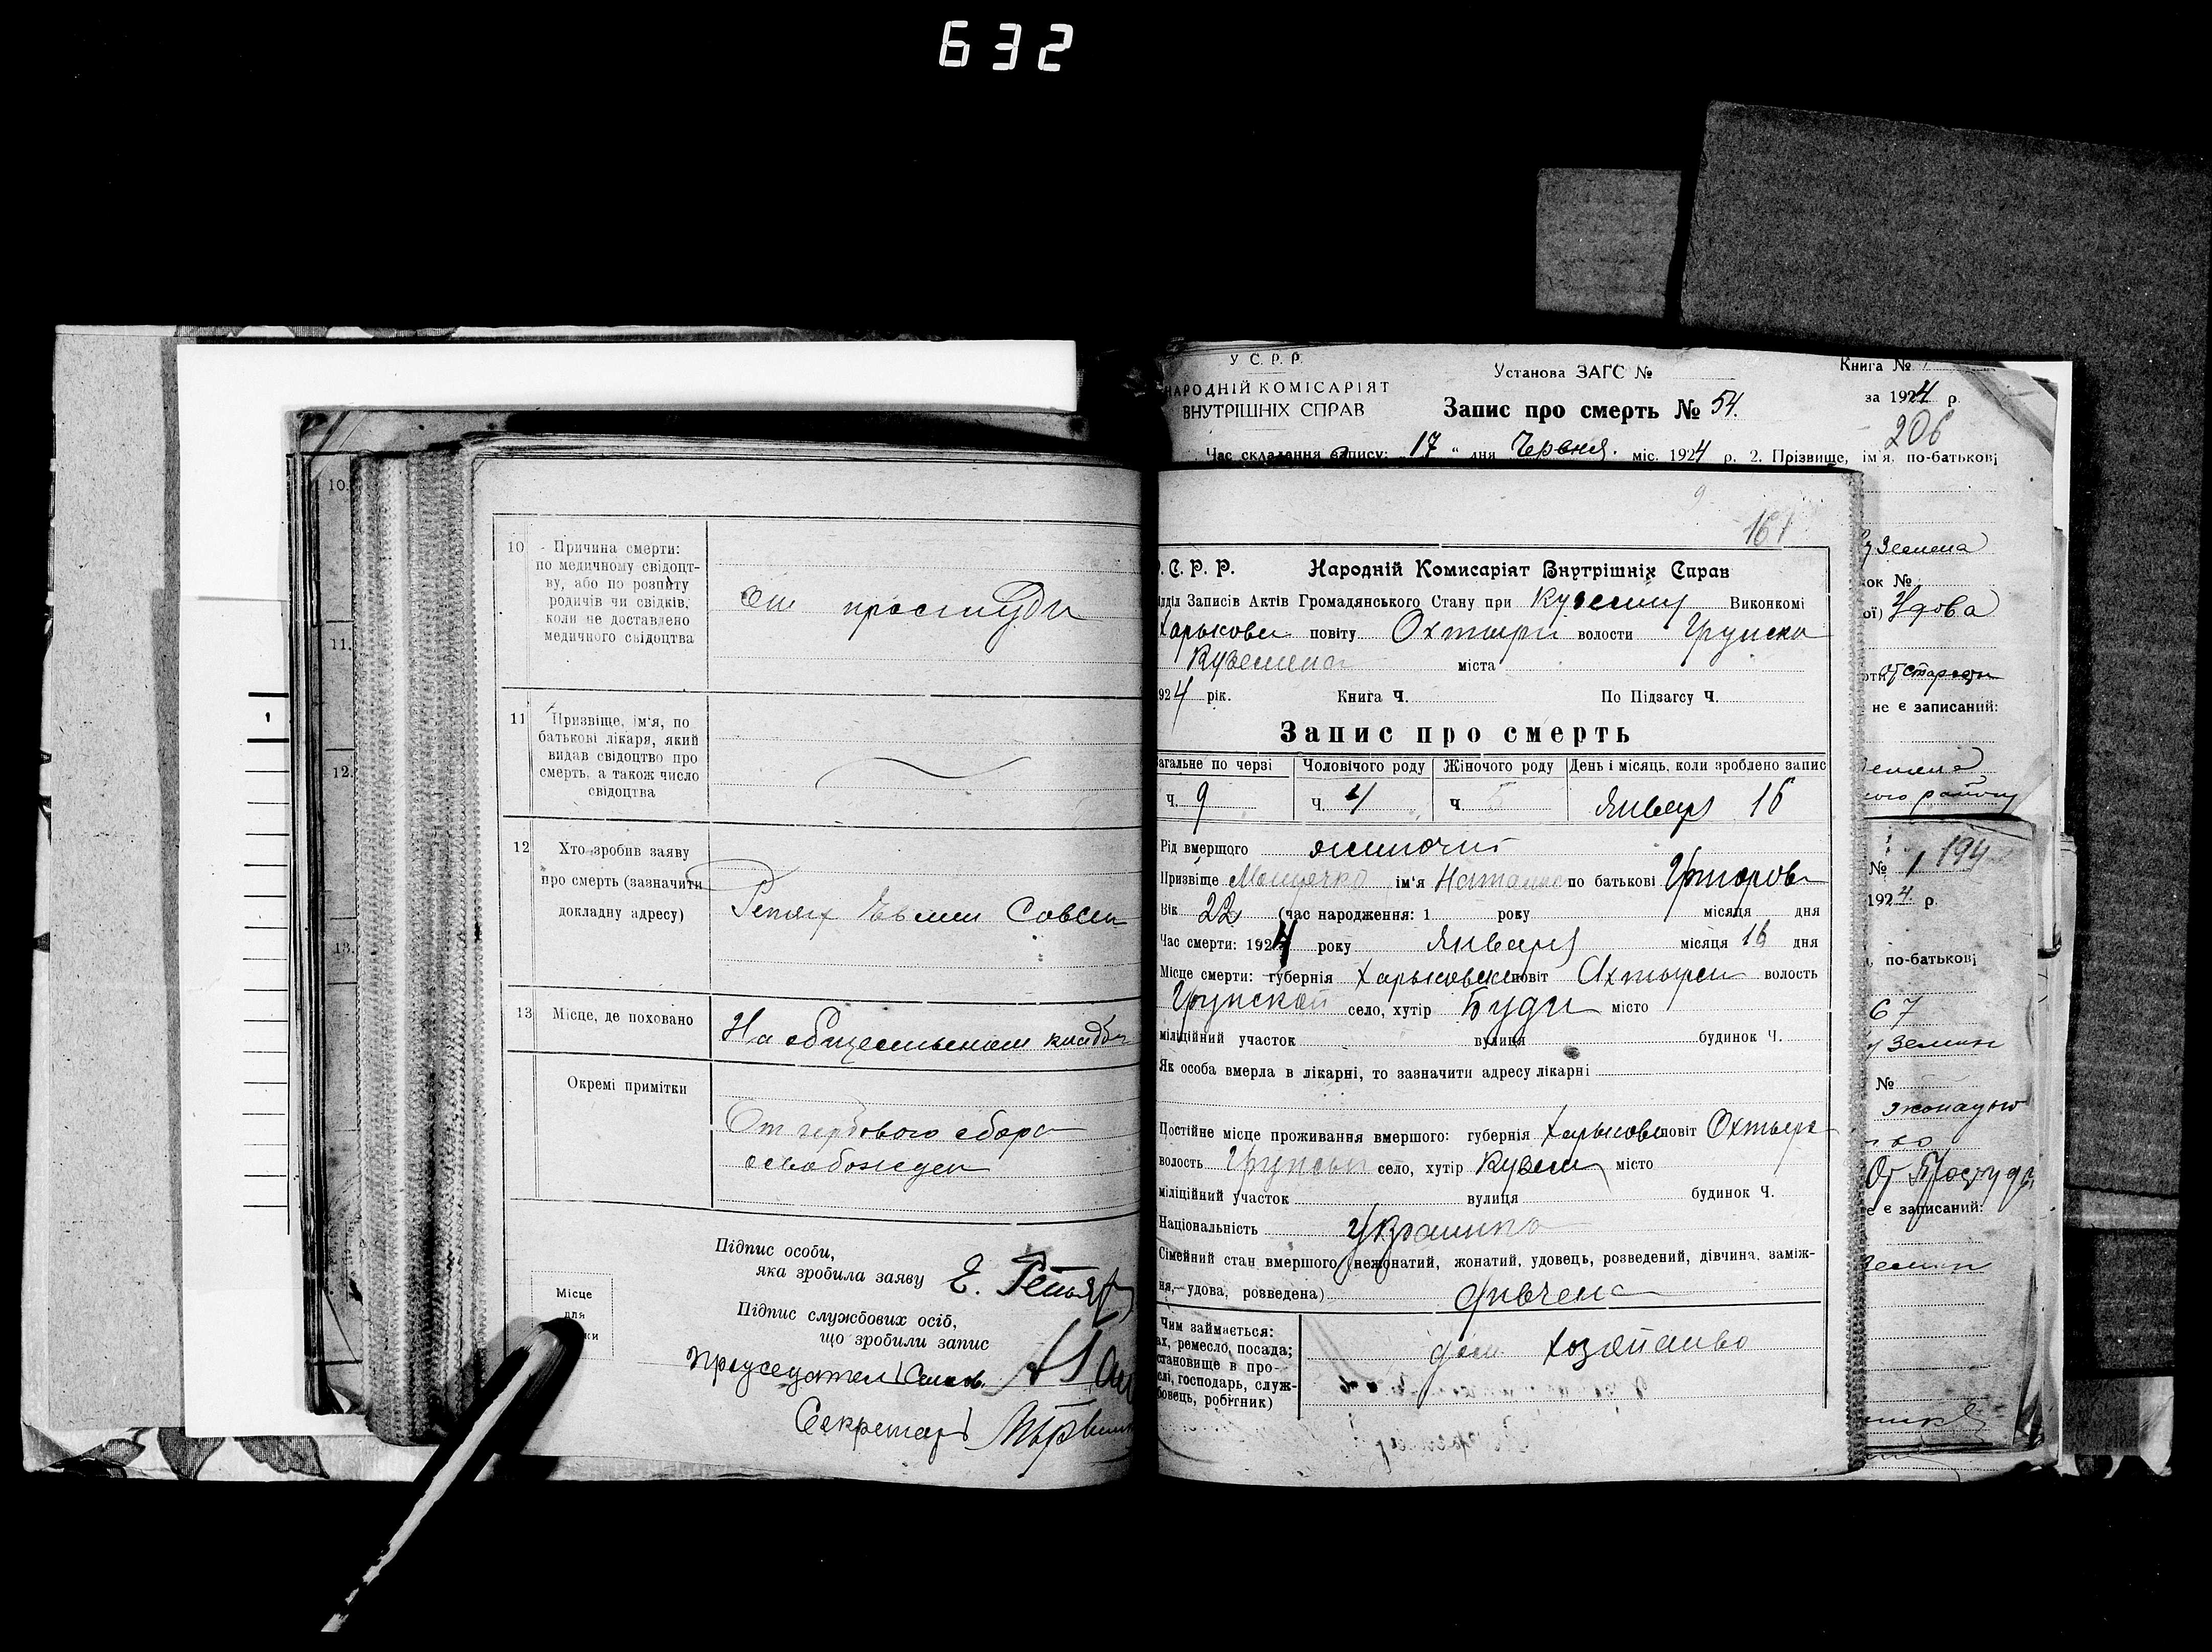 632
10.
11.
12.
13.
10
Причина смерти:
по медичному свідоцт-
ву, або по розпиту
родичів чи свідків,
коли не доставлено
медичного свідоцтва
От простуди
11
Призвіще, ім'я, по
батькові лікаря, який
видав свідоцтво про
смерть, а також число
свідоцтва
12
Хто зробив заяву
про смерть (зазначити
докладну адресу)
Репях
13
Місце, де поховано
На общественом кладб
Окремі примітки
От гербового сбора
освобожден
Підпис особи,
яка зробила заяву Е. Репях
Підпис службових осіб,
що зробили запис
Місце
для
Председатель
Секретарь
У С. Р. Р.
НАРОДНІЙ КОМІСАРІЯТ
ВНУТРІШНІХ СПРАВ
Установа ЗАГС №
Книга №
Запис про смерть № 54.
за 1924 р.
206
Час складання запису: „17" дня Червня. міс. 1924 р. 2. Прізвище, ім'я, по-батькові
161
С. Р. Р. Народній Комисаріят Внутрішніх Справ
Записів Актів Громадянського Стану при Куземин Виконкомі
Харькове повіту Охтирк волости Грунско
Куземена міста
924 рік. Книга Ч. По Підзагсу Ч.
Запис про смерть
Загальне по черзі Чоловічого роду Жіночого роду День і місяць, коли зроблено запис
Ч. 9 Ч. 4 Ч. 5 Январ 16
Рід вмерщого жиночий
Призвіще ім'я Наталия по батькові
Вік 22 (час народження: 1 року місяця дня
Час смерти: 1924 року Январ місяця 16 дня
Місце смерти: губернія Харьковск повіт Ахтырск волость
Грунской село, хутір Буди місто
міліційний участок вулиця будинок Ч.
Як особа вмерла в лікарні, то зазначити адресу лікарні
Постійне місце проживання вмершого: губернія Харькове повіт Охтырк
волость Грунськ село, хутір Кузем місто
міліційний участок вулиця будинок Ч.
Національність Украинка
Сімейний стан вмершого (нежонатий, жонатий, удовець, розведений, дівчина, заміж-
ня,—удова, розведена) дивчена
Чим займається:
ах, ремесло, посада;
становище в про-
слі, господарь, служ-
бовець, робітник)
дом хозяйство
Куземена
ок №
ої) Удова
От старости
не є записаний:
ого району
№ 1 194
1924 р.
по-батькові
67
Земин
№
От Простуди
е є записаний: